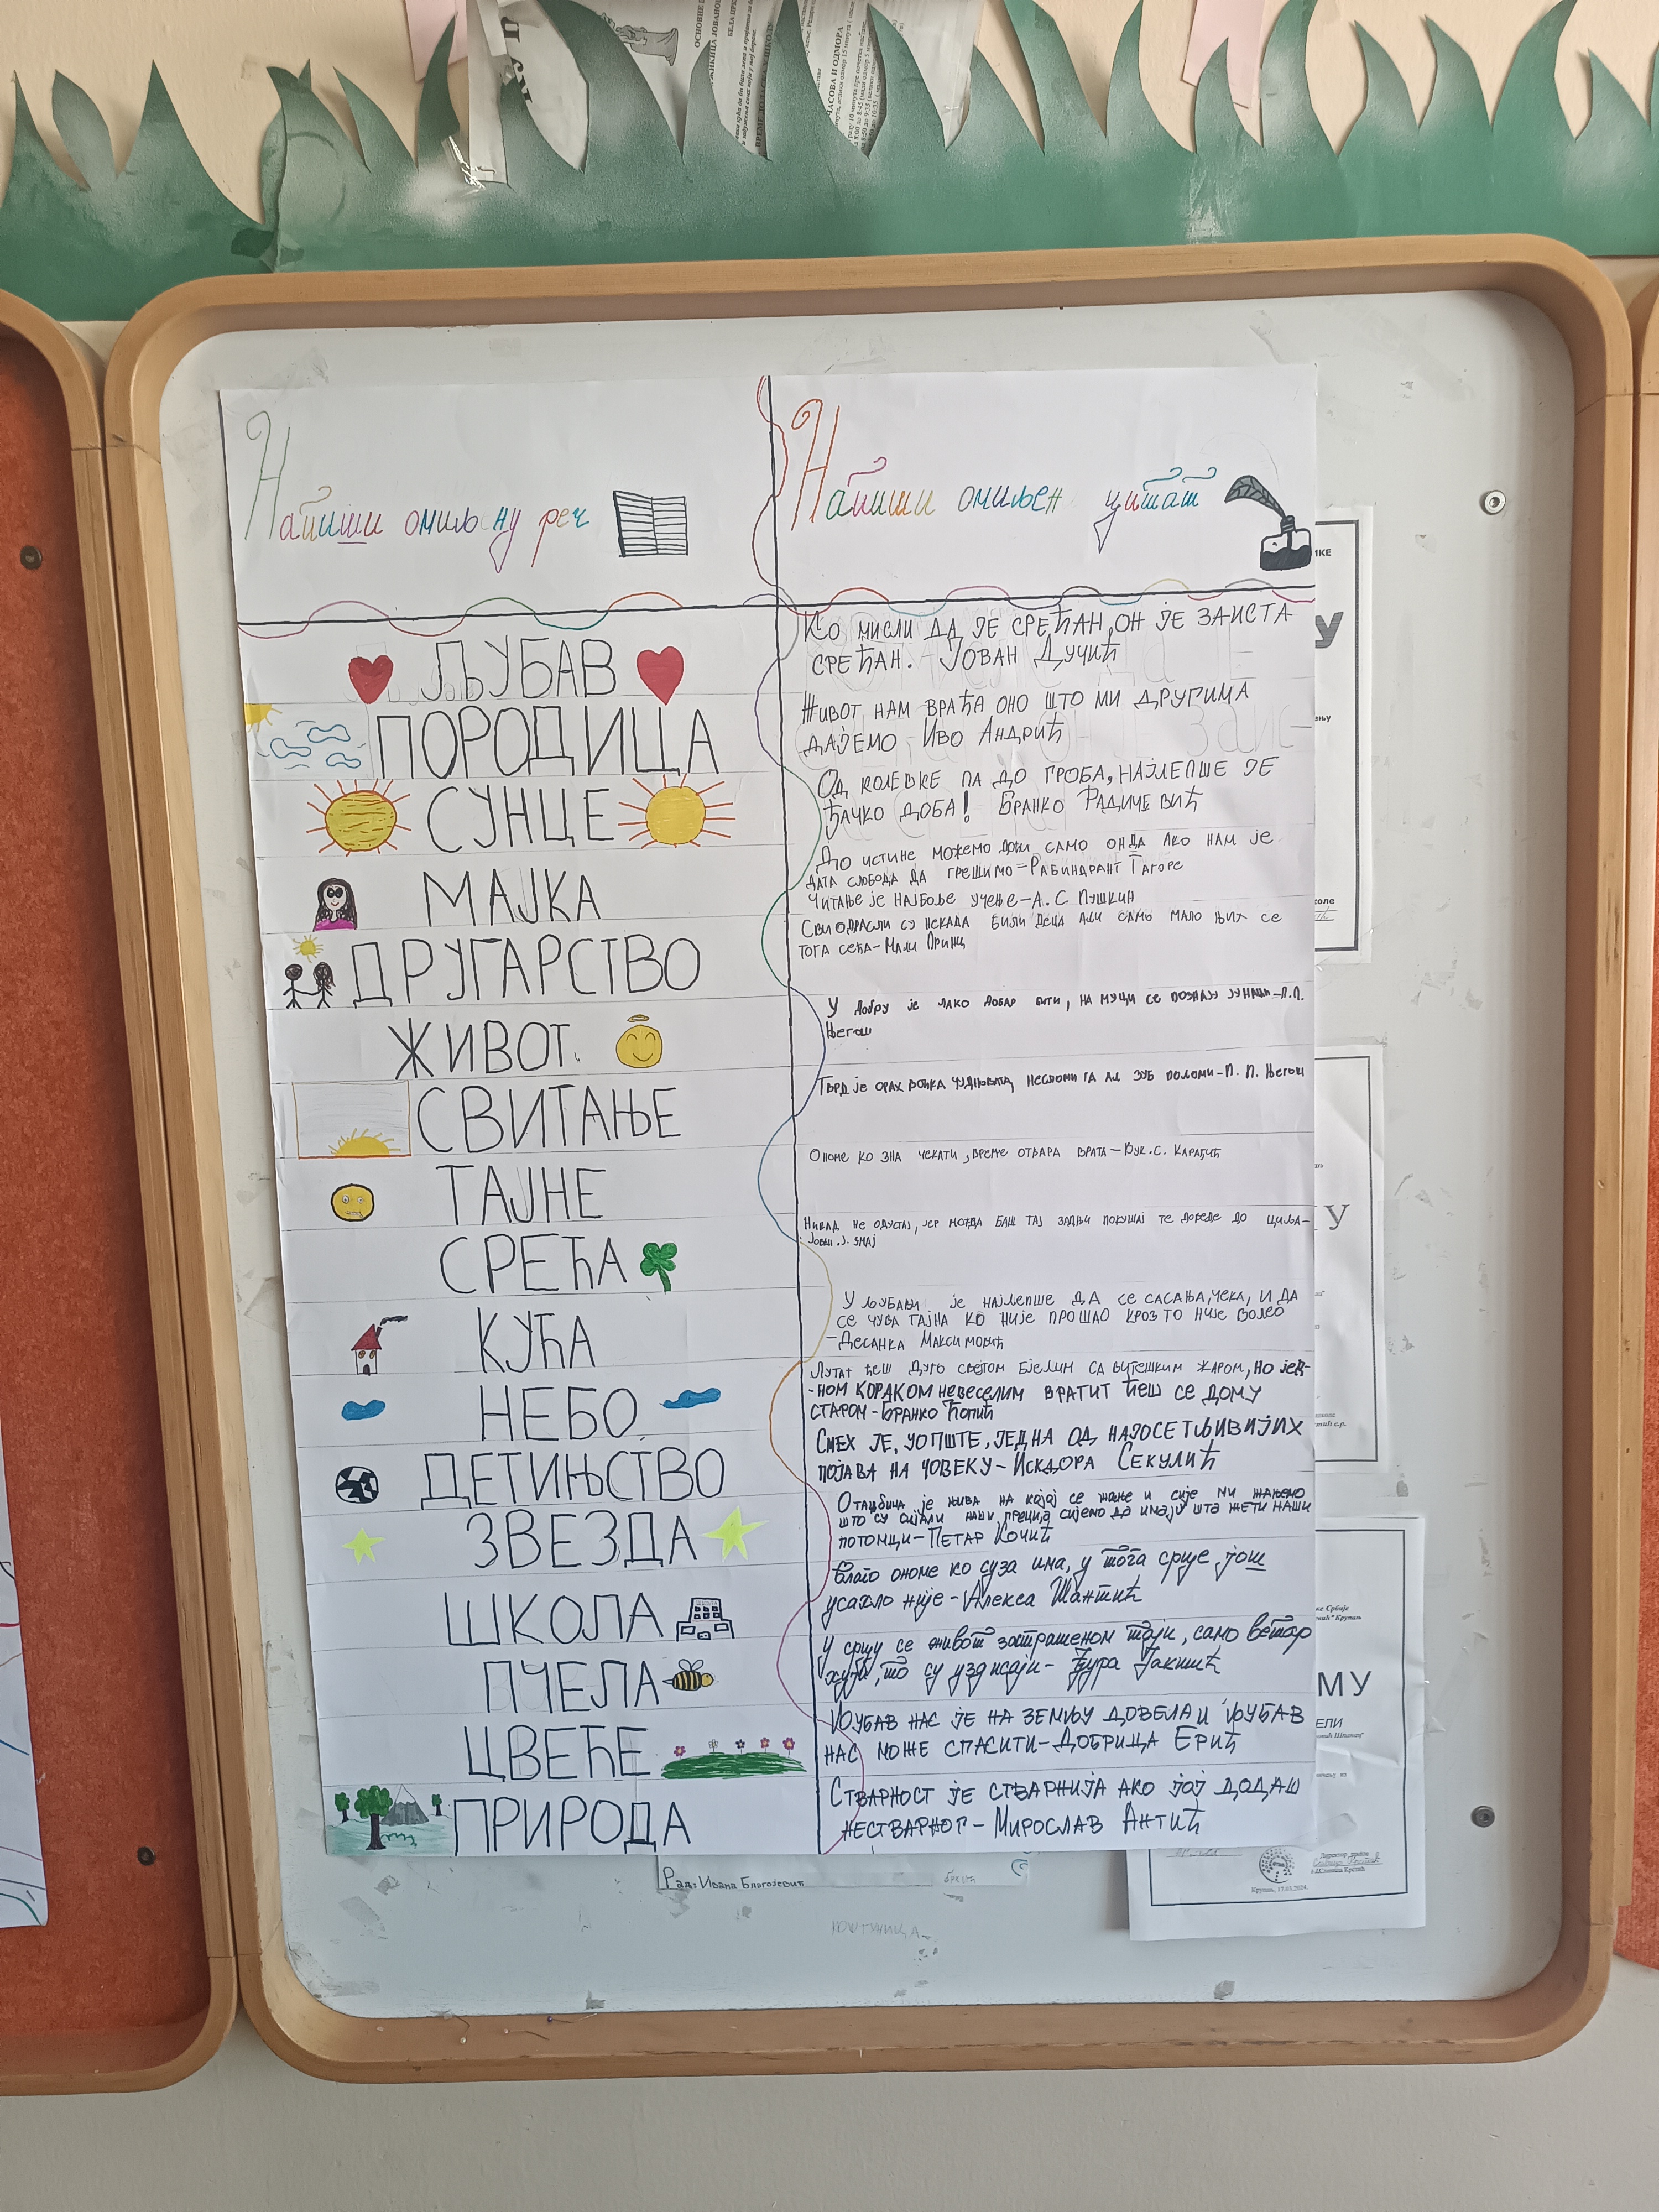 ОСНОВНЕ
ЧАСОВА И ОДМОРА
Напиши омиљену реч
Напиши омиљен цитат
ЉУБАВ
ПОРОДИЦА
СУНЦЕ
МАЈКА
ДРУГАРСТВО
ЖИВОТ
СВИТАЊЕ
ТАЈНЕ
СРЕЋА
КУЋА
НЕБО
ДЕТИЊСТВО
ЗВЕЗДА
ШКОЛА
ПЧЕЛА
ЦВЕЋЕ
ПРИРОДА
КО МИСЛИ ДА ЈЕ СРЕЋАН, ОН ЈЕ ЗАИСТА
СРЕЋАН. - ЈОВАН ДУЧИЋ
ЖИВОТ НАМ ВРАЋА ОНО ШТО МИ ДРУГИМА
ДАЈЕМО - ИВО АНДРИЋ
ОД КОЛЕВКЕ ПА ДО ГРОБА, НАЈЛЕПШЕ ЈЕ
ЂАЧКО ДОБА! БРАНКО РАДИЧЕВИЋ
ДО ИСТИНЕ МОЖЕМО ДОЋИ САМО ОНДА АКО НАМ ЈЕ
ДАТА СЛОБОДА ДА ГРЕШИМО - РАБИНДРАНТ ТАГОРЕ
ЧИТАЊЕ ЈЕ НАЈБОЉЕ УЧЕЊЕ - А. С. ПУШКИН
СВИ ОДРАСЛИ СУ НЕКАДА БИЛИ ДЕЦА АЛИ САМО МАЛО ЊИХ СЕ
ТОГА СЕЋА - МАЛИ ПРИНЦ
У ДОБРУ ЈЕ ЛАКО ДОБАР БИТИ, НА МУЦИ СЕ ПОЗНАЈУ ЈУНАЦИ - П.П.
ЊЕГОШ
ТВРД ЈЕ ОРАХ ВОЋКА ЧУДНОВАТА, НЕСЛОМИ ГА АЛ ЗУБ ПОЛОМИ - П. П. ЊЕГОШ
ОНОМЕ КО ЗНА ЧЕКАТИ, ВРЕМЕ ОТВАРА ВРАТА - ВУК. С. КАРАЏИЋ
НИКАД НЕ ОДУСТАЈ, ЈЕР МОЖДА БАШ ТАЈ ЗАДЊИ ПОКУШАЈ ТЕ ДОВЕДЕ ДО ЦИЉА -
ЈОВАН.Ј. ЗМАЈ
У ЉУБАВИ ЈЕ НАЈЛЕПШЕ ДА СЕ САСАЊА, ЧЕКА, И ДА
СЕ ЧУВА ТАЈНА КО НИЈЕ ПРОШАО КРОЗ ТО НИЈЕ ВОЛЕО
- ДЕСАНКА МАКСИМОВИЋ
ЛУТАТ ЋЕШ ДУГО СВЕТОМ БИЈЕЛИМ СА ВИТЕШКИМ ЖАРОМ, НО ЈЕД-
-НОМ КОРАКОМ НЕВЕСЕЛИМ ВРАТИТ ЋЕШ СЕ ДОМУ
СТАРОМ - БРАНКО ЋОПИЋ
СМЕХ ЈЕ, УОПШТЕ, ЈЕДНА ОД НАЈОСЕТЉИВИЈИХ
ПОЈАВА НА ЧОВЕКУ - ИСКДОРА СЕКУЛИЋ
ОТАЏБИНА ЈЕ ЊИВА НА КОЈОЈ СЕ ЖАЊЕ И СИЈЕ МИ ЖАЊЕМО
ШТО СУ СИЈАЛИ НАШИ ПРЕЦИ А СИЈЕМО ДА ИМАЈУ ШТА ЖЕТИ НАШИ
ПОТОМЦИ - ПЕТАР КОЧИЋ
Благо ономе ко суза има, у тога срце још
усахло није - Алекса Шантић
У срцу се живот застрашеном таји, само ветар
хуји, то су уздисаји - Ђура Јакшић
ЉУБАВ НАС ЈЕ НА ЗЕМЉУ ДОВЕЛА И ЉУБАВ
НАС МОЖЕ СПАСИТИ - ДОБРИЦА ЕРИЋ
СТВАРНОСТ ЈЕ СТВАРНИЈА АКО ЈОЈ ДОДАШ
НЕСТВАРНОГ - МИРОСЛАВ АНТИЋ
Рад: Ивана Благојевић
КОШТУНИЦА
У
У
МУ
Директор школе
Крупањ, 17.03.2024.